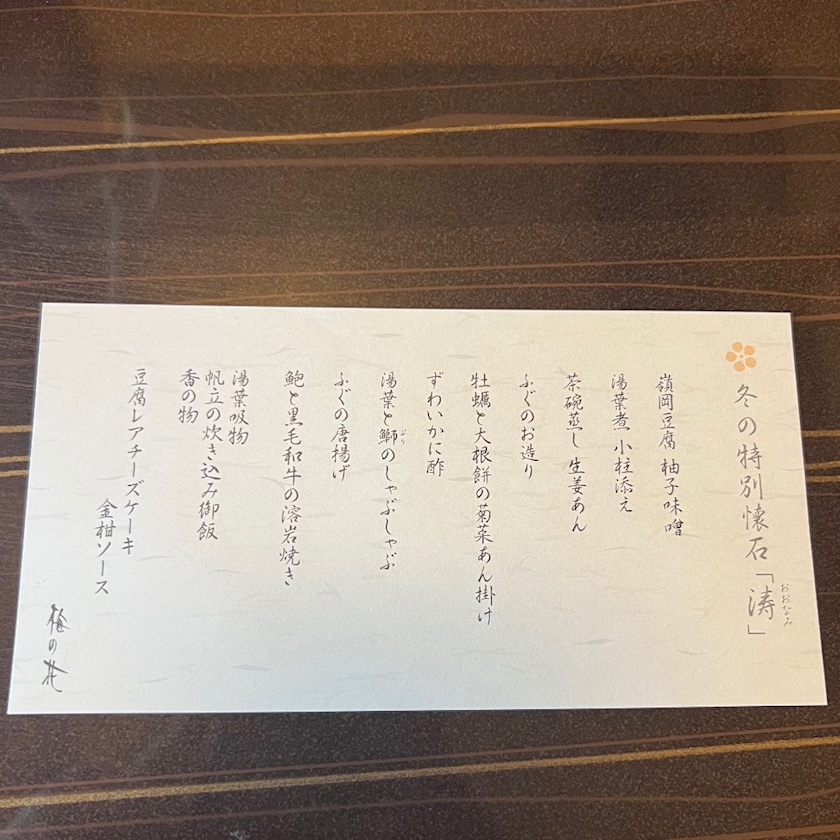 冬の特別懐石「涛」
おおなみ
嶺岡豆腐 柚子味噌
湯葉煮 小柱添え
茶碗蒸し 生姜あん
ふぐのお造り
牡蠣と大根餅の菊菜あん掛け
ずわいかに酢
湯葉と鰤のしゃぶしゃぶ
ぶり
ふぐの唐揚げ
鮑と黒毛和牛の溶岩焼き
湯葉吸物
帆立の炊き込み御飯
香の物
豆腐レアチーズケーキ
金柑ソース
梅の花